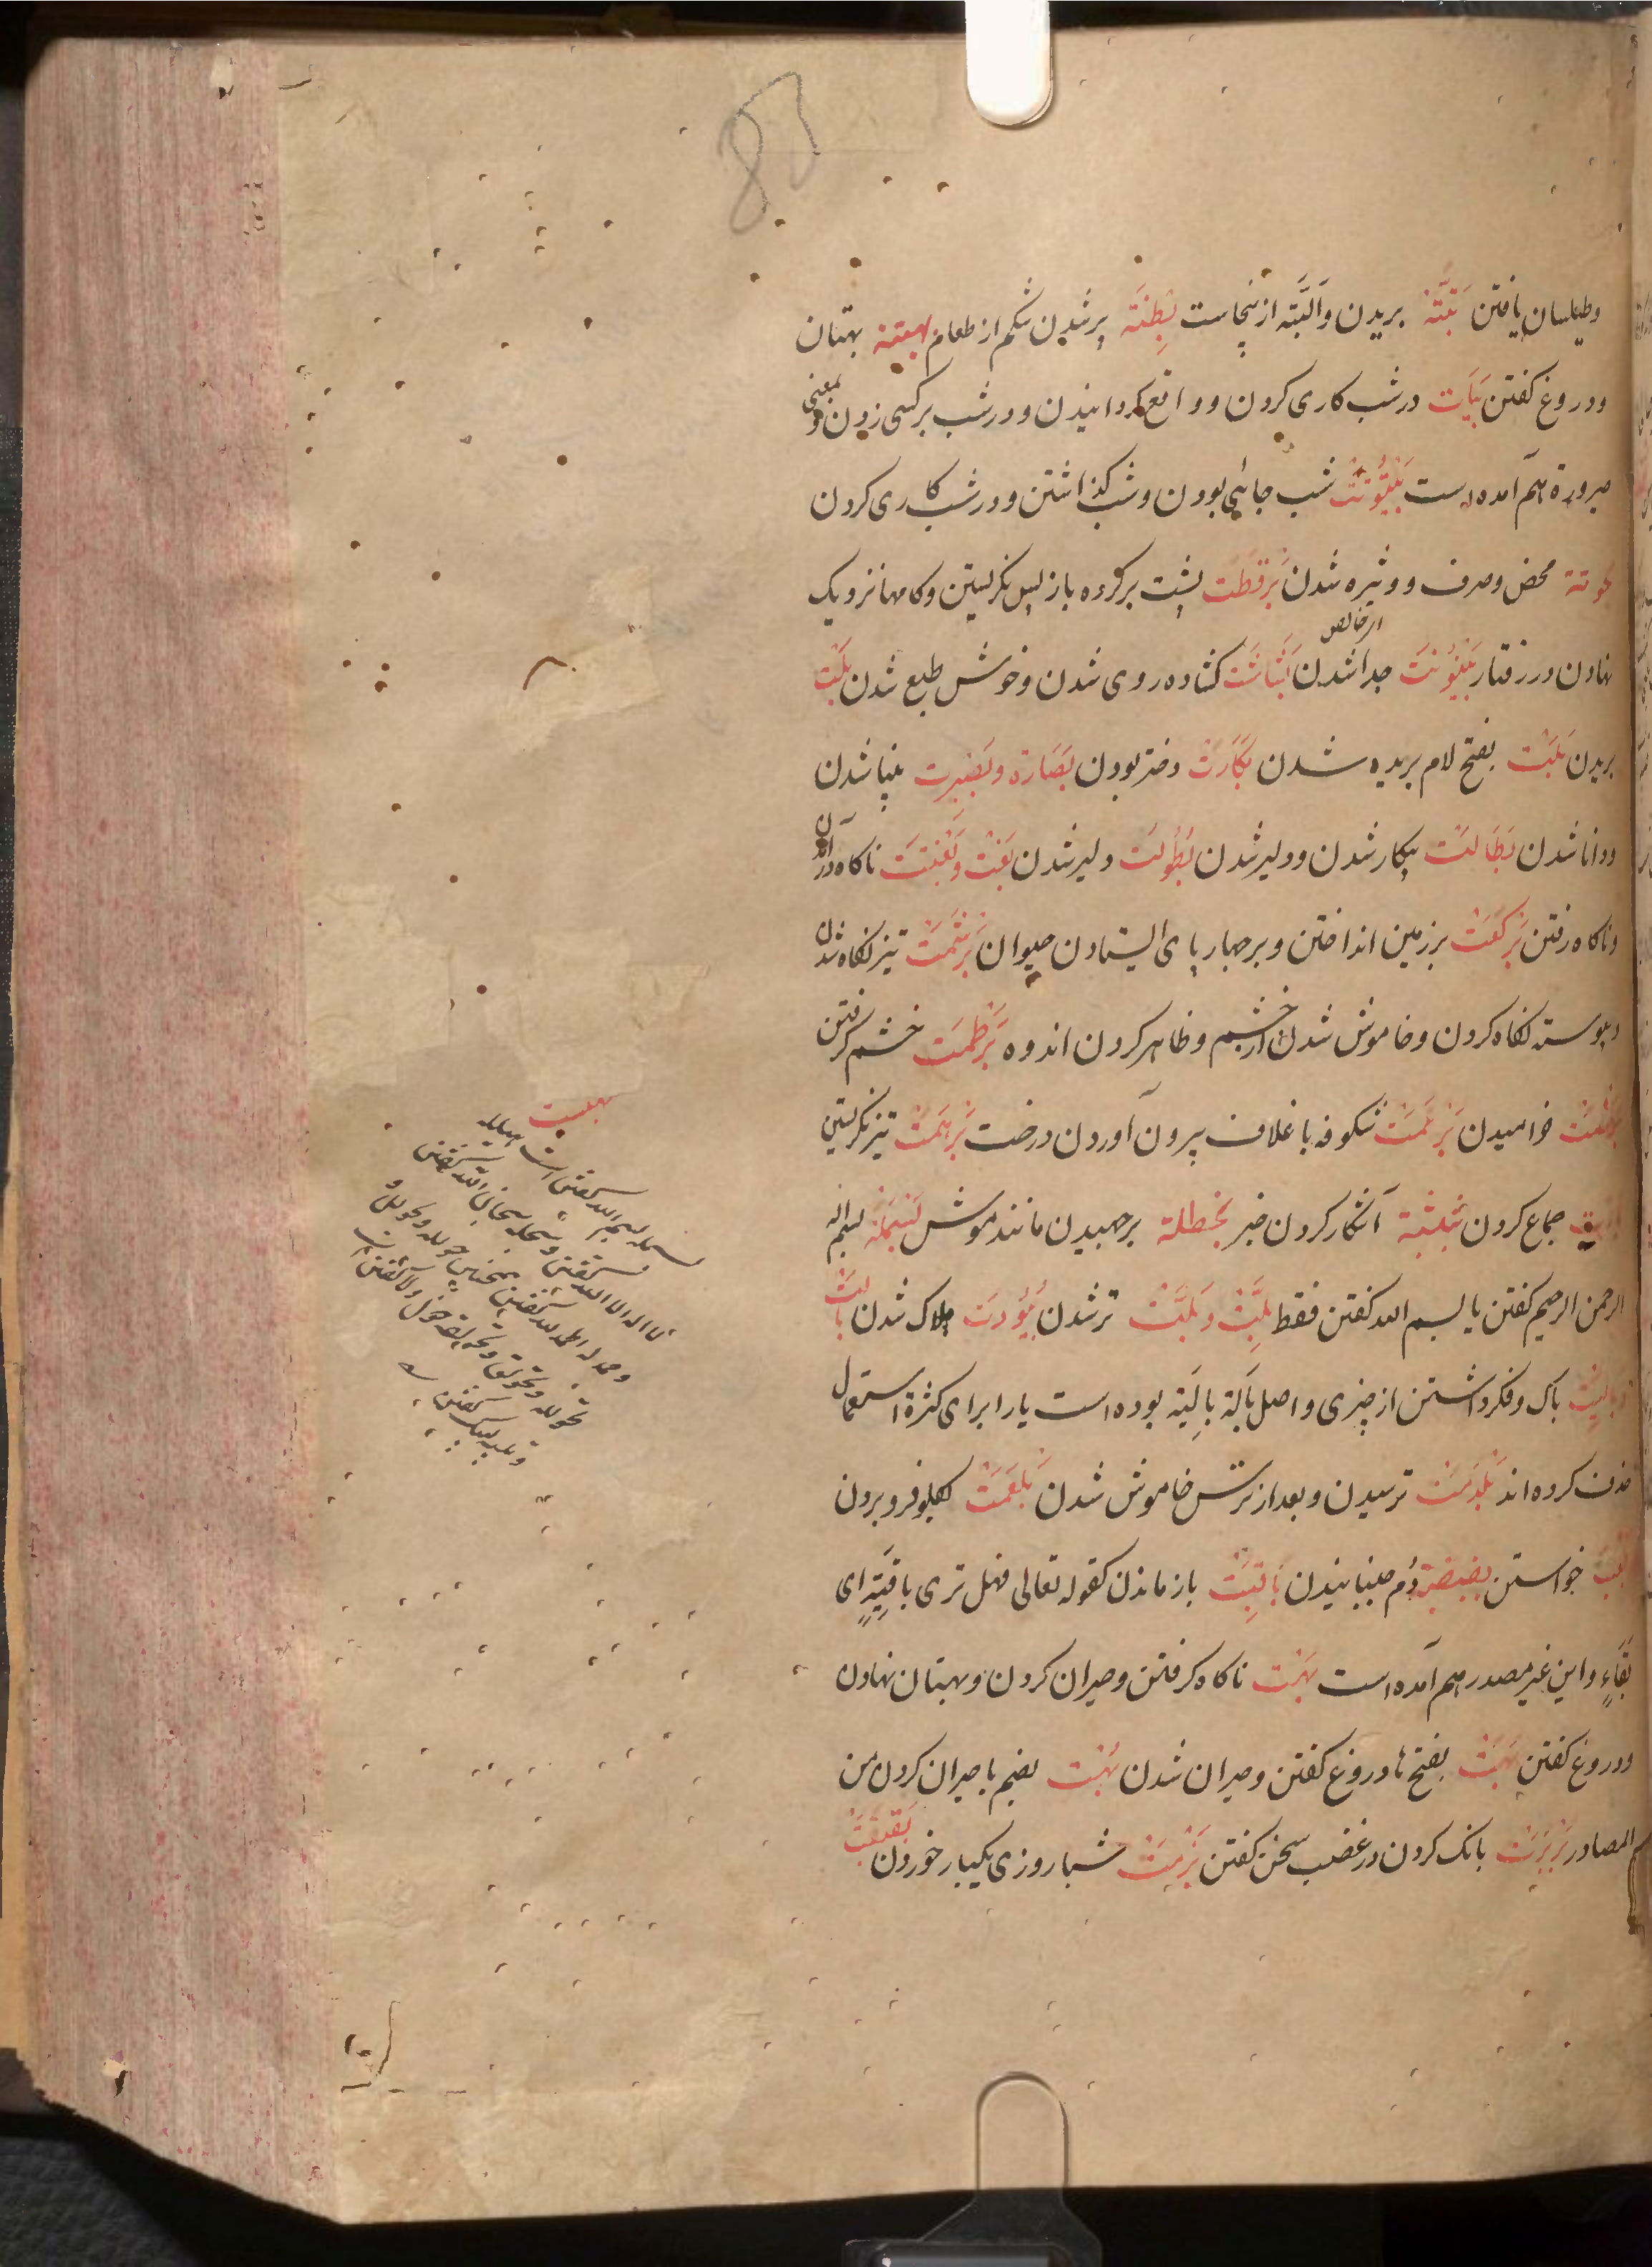 83
وطیلسان یافتن بَتَّتَه بریدن والبَتَّه ازینجاست بِطنَة پر شدن شکم از طعام بهیتة بهتان
ودروغ کفتن بَیات در شب کاری کردن وواقع کردانیدن ودر شب بر کسی زدن و بمعنی
صیرورة هم آمده است بَیْتُوتَت شب جائی بودن وشب کذاشتن ودر شب کاری کردن
محض وصرف و شدن بَرقَطَت پشت بر کرده باز پس نکریستن وکامها نزدیک
نهادن در رفتار بَیْنُونَت جدا شدن بَشاشَت کشاده روی شدن وخوش طبع شدن بَلْت
بریدن بَلَت بفتح لام بریده شدن بَکارَت دختر بودن بَصارَة وبَصیرت بینا شدن
ودانا شدن بَطالَت بیکار شدن ودلیر شدن بُطُولَت دلیر شدن بَغْت وبَغْتَت ناکاه در آمدن
وناکاه رفتن بَرکَعَت بر زمین انداختن وبر چهار پای ایستادن حیوان بَرشَمَت تیز نکاه شدن
وپیوسته نکاه کردن وخاموش شدن از خشم وظاهر کردن اندوه بَرطَمَت خشم کرفتن
خوابیدن بَرعَمَت شکوفه با غلاف بیرون آوردن درخت بَرهَمَت تیز نکریستن
جماع کردن بَثبَثة آشکار کردن خبر بَخطَلة برجهیدن مانند موش بَسمَلَة بسم الله
الرحمن الرحیم کفتن یا بسم الله کفتن فقط بِلَّت وبَلَّت تر شدن بُیُودَت هلاک شدن بالَت
وبالِیَت باک وفکر داشتن از چیزی واصل بالَة بالِیَة بوده است یا را برای کثرة استعمال
حذف کرده اند بَلدَمَت ترسیدن وبعد از ترس خاموش شدن بَلعَمَت بکلو فرو بردن
خواستن بَصبَصَة دُم جنبانیدن باقِیَت باز ماندن کقوله تعالی فهل تری باقِیَةٍ ای
بَقاءٍ واین غیر مصدر هم آمده است بَهْت ناکاه کرفتن وحیران کردن وبهتان نهادن
ودروغ کفتن بَهَت بفتح ها دروغ کفتن وحیران شدن بُهْت بضم با حیران کردن من
المصادر بَربَرَت بانک کردن در غضب سخن کفتن بَزمَت شبا روزی یکبار خوردن بَقبَقَت
ای خالص
بسمله بسم الله کفتن است هیلله
لا اله الا الله کفتن وسبحله سبحان الله کفتن
وحمدله الحمد لله کفتن همچنین حوقله
ولبیک کفتن